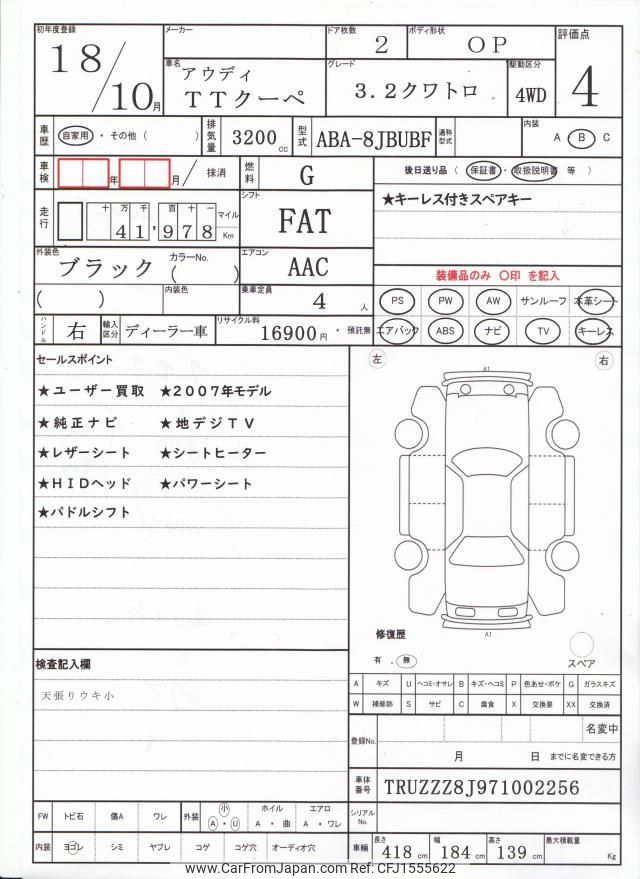 初年度登録 メーカー ドア枚数 ボディ形状 評価点
18/10月 2 OP 4
車名 グレード 駆動区分
アウディ
TTクーペ 3.2クワトロ 4WD
車歴 自家用・その他( ) 排気量 3200cc 型式 ABA-8JBUBF 通称型式 内装 A B C
車検 年 月/ 抹消 燃料 G 後日送り品 ( 保証書・取扱説明書 等 )
走行 十万千百十一 シフト ★キーレス付きスペアキー
41,978 マイル Km FAT
外装色 カラーNo. エアコン
ブラック ( ) AAC 装備品のみ 〇印 を記入
( ) 内装色 乗車定員 4人 PS PW AW サンルーフ 本革シート
ハンドル 右 輸入区分 ディーラー車 リサイクル料 16900円・預託無 エアバック ABS ナビ TV キーレス
セールスポイント 左 右
★ユーザー買取 ★2007年モデル A1
★純正ナビ ★地デジTV
★レザーシート ★シートヒーター
★HIDヘッド ★パワーシート
★パドルシフト
A1
修復歴
有・無 スペア
検査記入欄
天張りウキ小
A キズ U ヘコミ・オサレ B キズ・ヘコミ P 色あせ・ボケ G ガラスキズ
W 補修跡 S サビ C 腐食 X 交換要 XX 交換済
登録No. 名変中
月 日 までに名変できる方
車体番号 TRUZZZ8J971002256
FW トビ石 傷A ワレ 外装 小 A・U ホイル A・曲 エアロ A・ワレ シリアルNo.
内装 ヨゴレ シミ ヤブレ コゲ コゲ穴 オーディオ穴 車輛 長さ 418cm 幅 184cm 高さ 139cm 最大積載量 Kg
www.CarFromJapan.com CFJ1555622